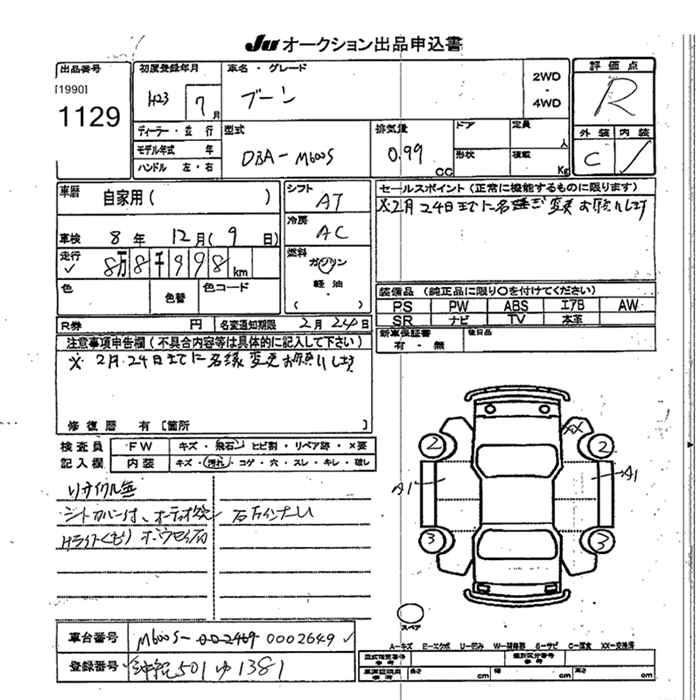 JU オークション出品申込書
出品番号
[1990]
1129
初度登録年月
H23 7月
車名・グレード
ブーン
2WD
・
4WD
評価点
R
ディーラー・並行
モデル年式 年
ハンドル 左・右
型式
DBA-M600S
排気量
0.99
CC
ドア
定員
人
形状
積載
Kg
外装 内装
C
車歴
自家用( )
シフト
AT
セールスポイント (正常に機能するものに限ります)
※2月24日までに名義変更お願いします
車検
8年 12月(9日)
冷房
AC
走行
8万8千998km
燃料
ガソリン
・
軽油
・
( )
色
色替
色コード
装備品 (純正品に限り○を付けてください)
PS PW ABS エアB AW
SR ナビ TV 本革
R券 円
名変通知期限 2月24日
新車保証書
有・無
後日品
注意事項申告欄 (不具合内容等は具体的に記入して下さい)
※2月24日までに名義変更お願いします
修復歴 有 [箇所 ]
検査員
記入欄
FW キズ・飛石・ヒビ割・リペア跡・×要
内装 キズ・汚れ・コゲ・穴・スレ・キレ・破レ
リサイクル無
シートカバー付、オーディオ欠
Hライトくもり
2 XX 2
A1 A1
3 3
スペア
車台番号 M600S-0002649
登録番号 501 ゆ 1381
A-キズ E-エクボ U-凹み W-補修跡 S-サビ C-腐食 XX-交換済
型式指定番号
参考
類別区分番号
参考
長さ cm 幅 cm 高さ cm